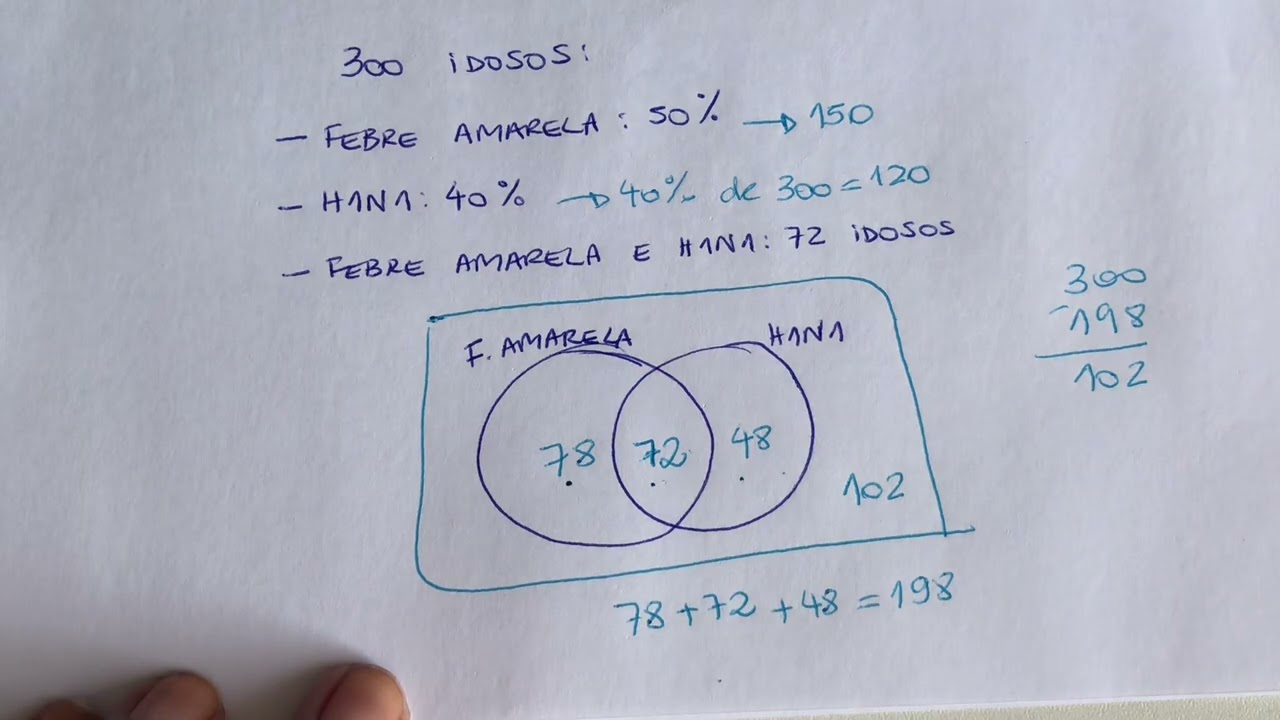 300 IDOSOS:
– FEBRE AMARELA: 50% → 150
– H1N1: 40% → 40% de 300 = 120
– FEBRE AMARELA E H1N1: 72 IDOSOS
300
-198
102
F. AMARELA H1N1
78 72 48
102
78 + 72 + 48 = 198